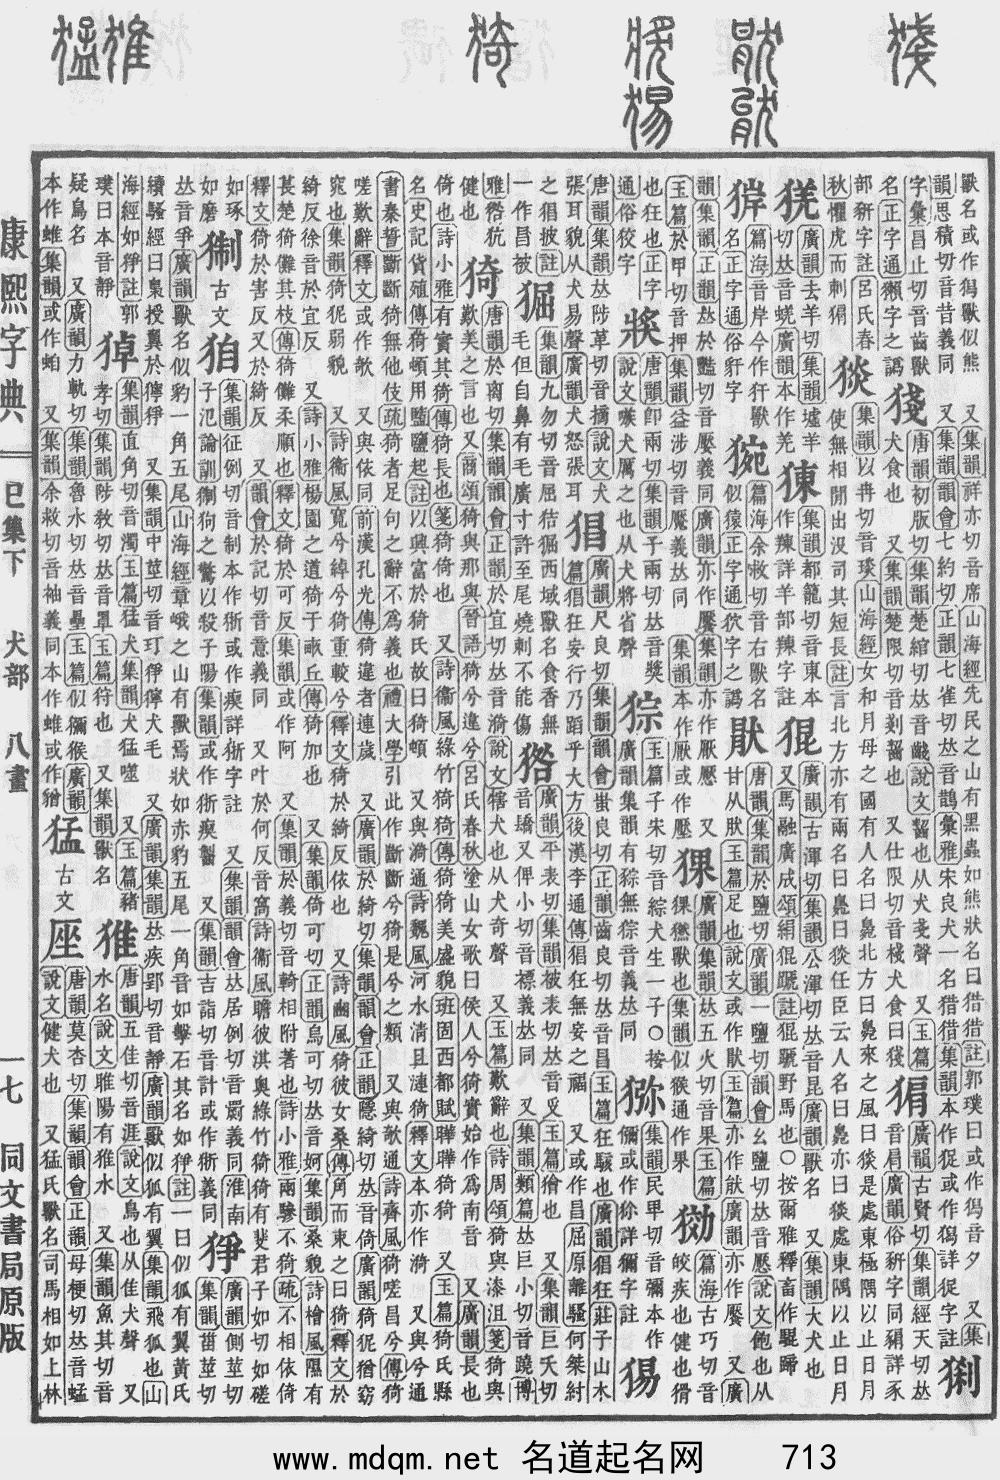 獸名或作獡獸似熊 又集韻祥亦切音席山海經先民之山有黑蟲如熊狀名曰猎猎註郭璞曰或作獡音夕 又集
韻思積切音昔義同 又集韻韻會七約切正韻七雀切𠀤音鵲彙雅宋良犬一名猎猎集韻本作㹱或作獡詳㹱字註 猁
字彙昌止切音齒獸 㹽 唐韻初版切集韻楚綰切𠀤音㦃說文齧也从犬戔聲 又玉篇 猏 廣韻古賢切集韻經天切𠀤
名正字通獺字之譌 犬食也 又集韻楚限切音剗齧也 又仕限切音棧犬食曰㹽 音肩廣韻俗豣字同猏詳豕
部豣字註呂氏春 㷋 集韻以冉切音琰山海經女和月母之國有人名曰鳧北方曰鳧來之風曰㷋是處東極隅以止日月
秋懼虎而刺猏 使無相閒出沒司其短長註言北方亦有兩名曰鳧曰㷋任臣云人名曰鳧亦曰㷋處東隅以止日月
猐 廣韻去羊切集韻墟羊 㹭 集韻都龍切音東本 猑 廣韻古渾切集韻公渾切𠀤音昆廣韻獸名 又集韻大犬也
切𠀤音蜣廣韻本作羌 作䍶詳羊部䍶字註 又馬融廣成頌絹猑蹏註猑蹏野馬也○按爾雅釋畜作騉歸
㟁 篇海音岸今作犴獸 㹶 篇海余救切音右獸名 猒 唐韻集韻於鹽切廣韻一鹽切韻會幺鹽切𠀤音懕說文飽也从
名正字通俗豻字 似猿正字通狖字之譌 甘从肰玉篇足也說文或作猒玉篇亦作猒廣韻亦作饜 又廣
韻集韻正韻𠀤於豔切音厭義同廣韻亦作饜集韻亦作厭懕 又 猓 廣韻集韻𠀤五火切音果玉篇 㹾 篇海古巧切音
玉篇於甲切音押集韻益涉切音魘義𠀤同 集韻本作厭或作壓 猓㹶獸也集韻似猴通作果 皎疾也健也猾
也狂也正字 奬 唐韻卽兩切集韻子兩切𠀤音獎 猔 玉篇子宋切音綜犬生一子○按 㹸 集韻民卑切音彌本作 猲
通俗狡字 說文嗾犬厲之也从犬將省聲 廣韻集韻有猔無㹐音義𠀤同 獼或作㹸詳獼字註
唐韻集韻𠀤陟革切音摘說文犬 猖 廣韻尺良切集韻韻會蚩良切正韻齒良切𠀤音昌玉篇狂駭也廣韻猖狂莊子山木
張耳貌从犬易聲廣韻犬怒張耳 篇猖狂妄行乃蹈乎大方後漢李通傳猖狂無妄之福 又或作昌屈原離騷何桀紂
之猖披註 㹲 集韻九勿切音屈㹲㹲西域獸名食香無 㹺 廣韻平表切集韻被表切𠀤音受玉篇獪也 又集韻巨夭切
一作昌被 毛但自鼻有毛廣寸許至尾燒刺不能傷 音驕又俾小切音標義𠀤同 又集韻類篇𠀤巨小切音蹻博
雅㹺犺 猗 唐韻於離切集韻韻會正韻於宜切𠀤音漪說文犗犬也从犬奇聲 又玉篇歎辭也詩周頌猗與漆沮箋猗與
健也 歎美之言也又商頌猗與那與晉語猗兮違兮 又呂氏春秋塗山女歌曰侯人兮猗實始作爲南音 又廣韻長也
倚也詩小雅有實其猗傳猗長也箋猗倚也 又詩衞風綠竹猗猗傳猗猗美盛貌班固西都賦曄曄猗猗 又玉篇猗氏縣
名史記貨殖傳猗頓用盬鹽起註以興富於猗氏故曰猗頓 又與漪通詩魏風河水淸且漣猗釋文本亦作漪 又與兮通
書秦誓斷斷猗無他伎疏猗者足句之辭不爲義也禮大學引此作斷斷兮猗是兮之類 又與欹通詩齊風猗嗟昌兮傳猗
嗟歎辭釋文或作欹 又與依同前漢孔光傳猗違者連歲 又廣韻於綺切集韻韻會正韻隱綺切𠀤音倚廣韻猗狔猶窈
窕也集韻猗狔弱貌 又詩衞風寬兮綽兮猗重較兮釋文猗於綺反依也 又詩豳風猗彼女桑傳角而束之曰猗釋文於
綺反徐音於宜反 又詩小雅楊園之道猗于畝丘傳猗加也 又集韻倚可切正韻烏可切𠀤音妸集韻桑貌詩檜風隰有
萇楚猗儺其枝傳猗儺柔順也釋文猗於可反集韻或作阿 又集韻於義切音輢相附著也詩小雅兩驂不猗疏不相依倚
釋文猗於害反又於綺反 又韻會於記切音意義同 又叶於何反音窩詩衞風瞻彼淇奧綠竹猗猗有斐君子如切如磋
如琢 猘 古文 狛 集韻征例切音制本作狾或作瘈詳狾字註 又集韻韻會𠀤居例切音罽義同淮南 猙 廣韻側莖切
如磨 子氾論訓猘狗之驚以殺子陽集韻或作㾀瘈㹜 又集韻吉詣切音計或作㾀義同 集韻甾莖切
𠀤音爭廣韻獸名似豹一角五尾山海經章峨之山有獸焉狀如赤豹五尾一角音如擊石其名如猙註一曰似狐有翼黃氏
續騷經曰梟授翼於獰猙 又集韻中莖切音玎猙獰犬毛 又廣韻集韻𠀤疾郢切音靜廣韻獸似狐有翼集韻飛狐也山
海經如猙註郭 㹿 集韻直角切音濁玉篇猛犬集韻犬猛噬 又玉篇豬 猚 唐韻五佳切音涯說文鳥也从隹犬聲 又
璞曰本音靜 孝切集韻陟敎切𠀤音罩玉篇狩也 又集韻獸名 水名說文雎陽有猚水 又集韻魚其切音
疑鳥名 又廣韻力軌切集韻魯水切𠀤音壘玉篇似獼猴廣韻 猛 古文 㾗 唐韻莫杏切集韻韻會正韻母梗切𠀤音蜢
本作蜼集韻或作蚰 又集韻余救切音袖義同本作蜼或作㺠 說文健犬也 又猛氏獸名司馬相如上林
康熙字典 巳集下 犬部 八畫 一七 同文書局原版
www.mdqm.net 名道起名网 713